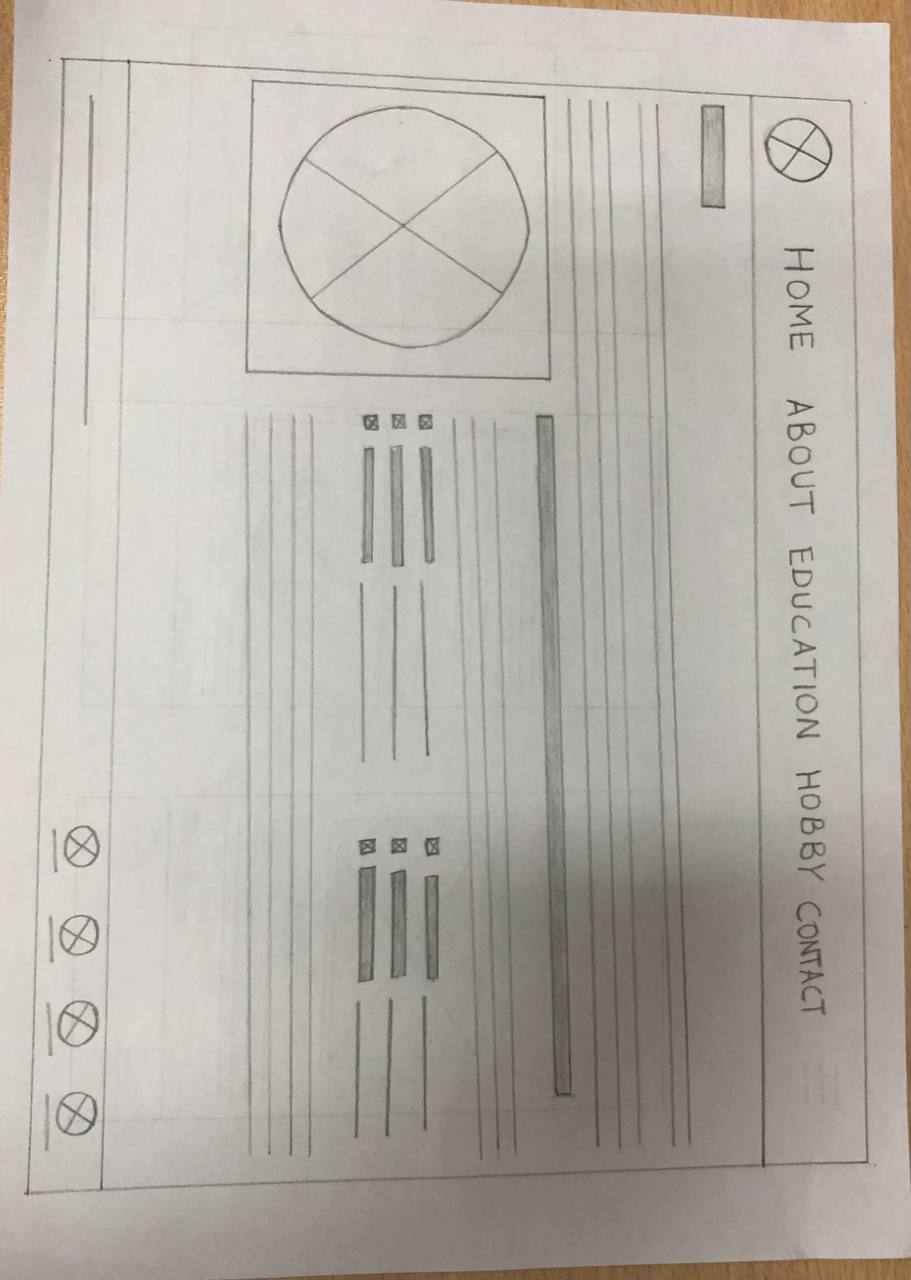 HOME ABOUT EDUCATION HOBBY CONTACT